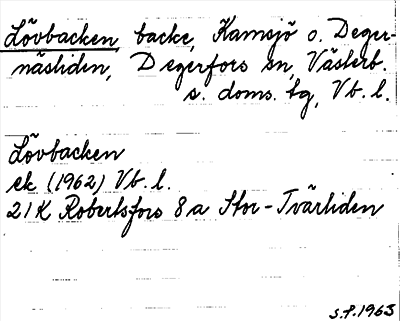 Lövbacken, backe, Hamsjö o. Deger-
näsliden, Degerfors sn, Västerb.
s. doms. tg, Vb. l.
Lövbacken
ek (1962) Vb. l.
21K Robertsfors 8a Stor-Tvärliden
S.P. 1963